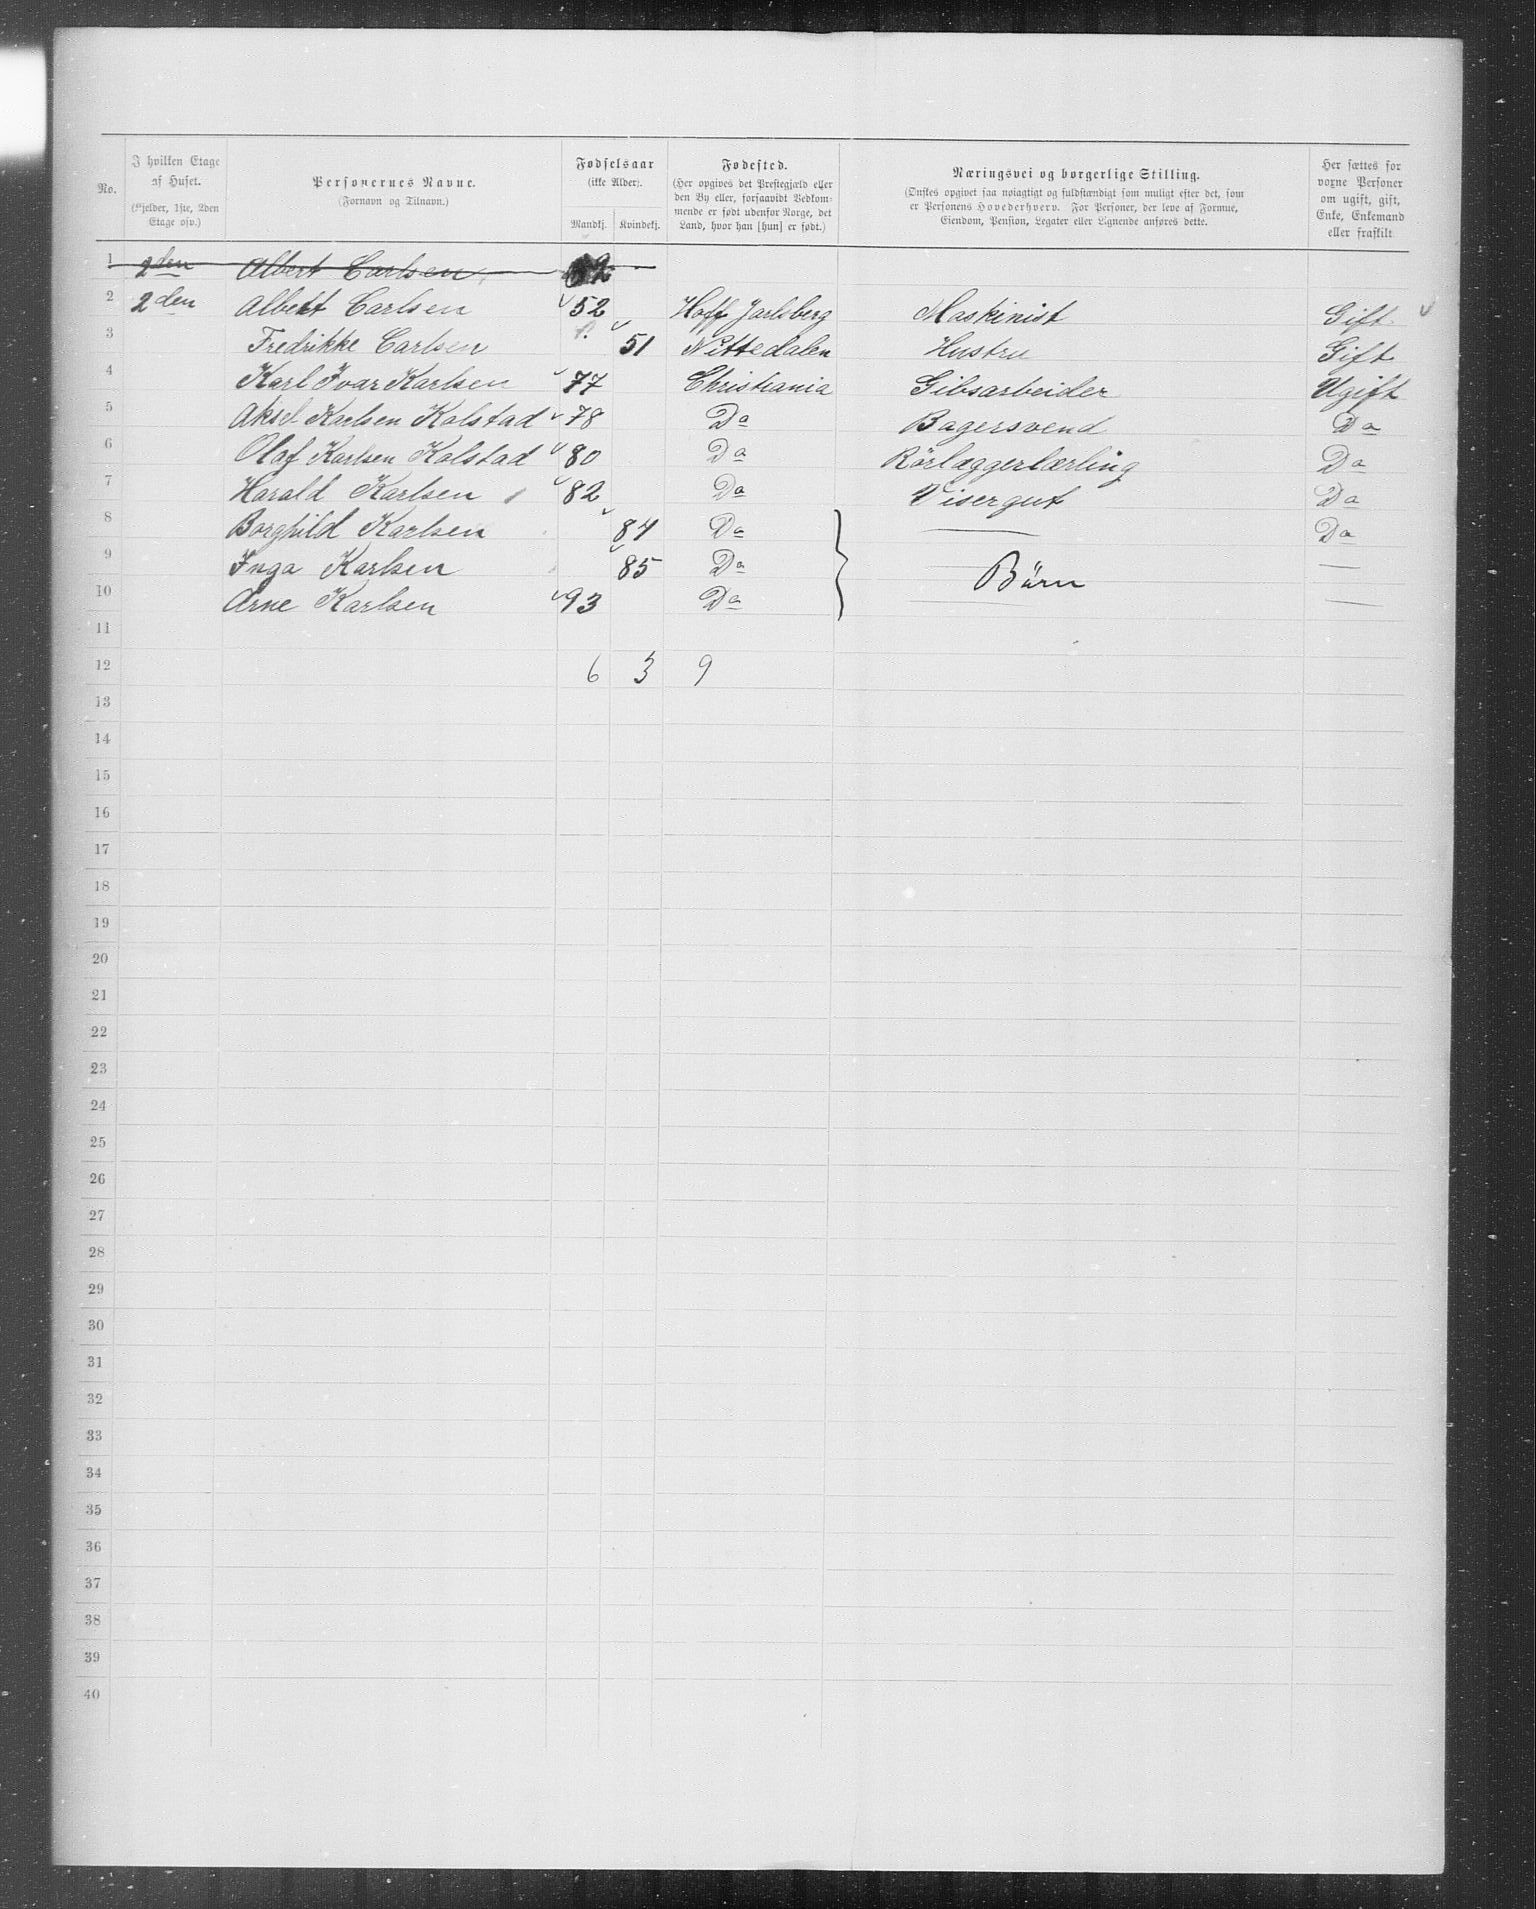 No.
I hvilken Etage af Huset. (Kjelder, 1ste, 2den Etage osv.)
Personernes Navne. (Fornavn og Tilnavn.)
Fødselsaar (ikke Alder). Mandkj. Kvindekj.
Fødested. (Her opgives det Prestegjæld eller den By eller, forsaavidt Vedkommende er født udenfor Norge, det Land, hvor han [hun] er født.)
Næringsvei og borgerlige Stilling. (Ønskes opgivet saa nøiagtigt og fuldstændigt som muligt efter det, som er Personens Hovederhverv. For Personer, der leve af Formue, Eiendom, Pension, Legater eller Lignende anføres dette.
Her sættes for voxne Personer om ugift, gift, Enke, Enkemand eller fraskilt
1 2den Albert Carlsen 52
2 2den Albert Carlsen 52 Hoff Jarlsberg Maskinist Gift
3 Fredrikke Carlsen 51 Nittedalen Hustru Gift
4 Karl Ivar Karlsen 77 Christiania Gibsarbeider Ugift
5 Aksel Karlsen Kolstad 78 Do Bagersvend Do
6 Olaf Karlsen Kolstad 80 Do Rörlæggerlærling Do
7 Harald Karlsen 82 Do Visergut Do
8 Borghild Karlsen 84 Do — Do
9 Inga Karlsen 85 Do } Börn —
10 Arne Karlsen 93 Do —
11
12 6 3 9
13
14
15
16
17
18
19
20
21
22
23
24
25
26
27
28
29
30
31
32
33
34
35
36
37
38
39
40